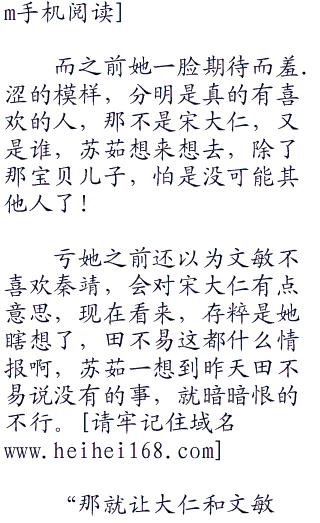 m手机阅读]
而之前她一脸期待而羞.
涩的模样，分明是真的有喜
欢的人，那不是宋大仁，又
是谁，苏茹想来想去，除了
那宝贝儿子，怕是没可能其
他人了！
亏她之前还以为文敏不
喜欢秦靖，会对宋大仁有点
意思，现在看来，存粹是她
瞎想了，田不易这都什么情
报啊，苏茹一想到昨天田不
易说没有的事，就暗暗恨的
不行。[请牢记住域名
www.heihei168.com]
“那就让大仁和文敏